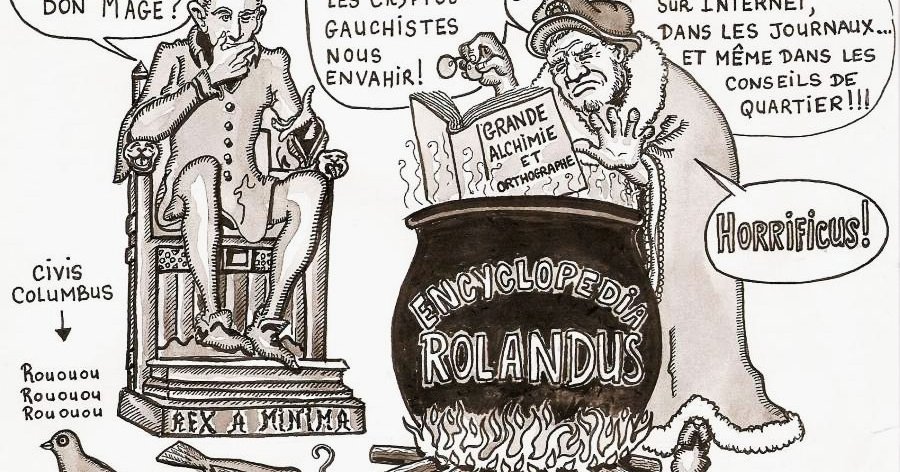 DON MAGE?
LES CRYPTO
GAUCHISTES
NOUS
ENVAHIR!
SUR INTERNET,
DANS LES JOURNAUX...
ET MÊME DANS LES
CONSEILS DE
QUARTIER!!!
GRANDE
ALCHIMIE
ET
ORTHOGRAPHE
HORRIFICUS!
CIVIS
COLUMBUS
ROUOUOU
ROUOUOU
ROUOUOU
ENCYCLOPEDIA
ROLANDUS
REX A MINIMA